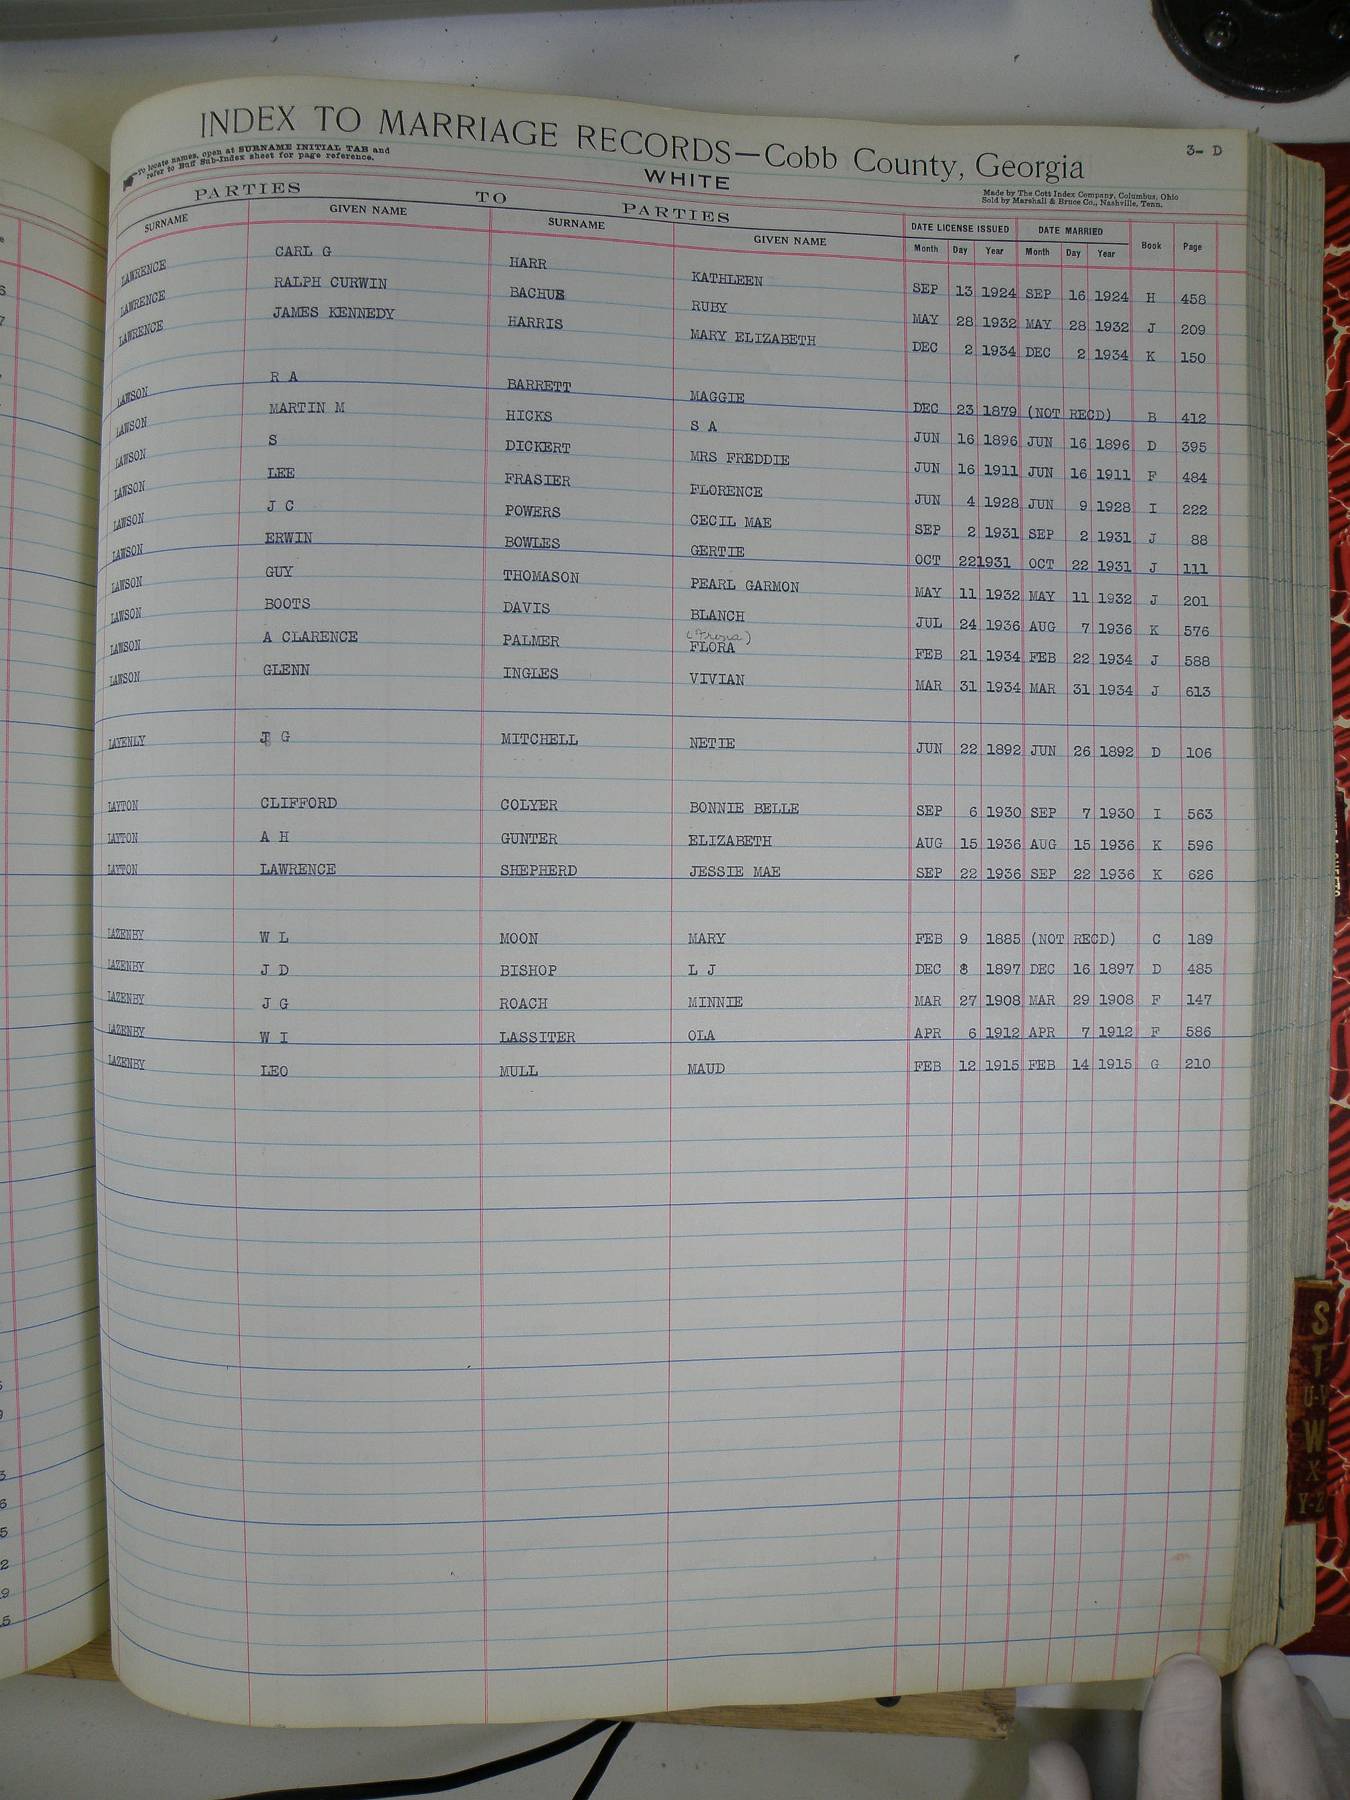 INDEX TO MARRIAGE RECORDS—Cobb County, Georgia
3- D
To locate names, open at SURNAME INITIAL TAB and
refer to Buff Sub-Index sheet for page reference.
WHITE
Made by The Cott Index Company, Columbus, Ohio
Sold by Marshall & Bruce Co., Nashville, Tenn.
PARTIES TO PARTIES
SURNAME GIVEN NAME SURNAME GIVEN NAME DATE LICENSE ISSUED DATE MARRIED Book Page
Month Day Year Month Day Year
LAWRENCE CARL G HARR KATHLEEN SEP 13 1924 SEP 16 1924 H 458
LAWRENCE RALPH CURWIN BACHUS RUBY MAY 28 1932 MAY 28 1932 J 209
LAWRENCE JAMES KENNEDY HARRIS MARY ELIZABETH DEC 2 1934 DEC 2 1934 K 150
LAWSON R A BARRETT MAGGIE DEC 23 1879 (NOT RECD) B 412
LAWSON MARTIN M HICKS S A JUN 16 1896 JUN 16 1896 D 395
LAWSON S DICKERT MRS FREDDIE JUN 16 1911 JUN 16 1911 F 484
LAWSON LEE FRASIER FLORENCE JUN 4 1928 JUN 9 1928 I 222
LAWSON J C POWERS CECIL MAE SEP 2 1931 SEP 2 1931 J 88
LAWSON ERWIN BOWLES GERTIE OCT 22 1931 OCT 22 1931 J 111
LAWSON GUY THOMASON PEARL GARMON MAY 11 1932 MAY 11 1932 J 201
LAWSON BOOTS DAVIS BLANCH JUL 24 1936 AUG 7 1936 K 576
LAWSON A CLARENCE PALMER FLORA FEB 21 1934 FEB 22 1934 J 588
LAWSON GLENN INGLES VIVIAN MAR 31 1934 MAR 31 1934 J 613
LAYENLY J G MITCHELL NETIE JUN 22 1892 JUN 26 1892 D 106
LAYTON CLIFFORD COLYER BONNIE BELLE SEP 6 1930 SEP 7 1930 I 563
LAYTON A H GUNTER ELIZABETH AUG 15 1936 AUG 15 1936 K 596
LAYTON LAWRENCE SHEPHERD JESSIE MAE SEP 22 1936 SEP 22 1936 K 626
LAZENBY W L MOON MARY FEB 9 1885 (NOT RECD) C 189
LAZENBY J D BISHOP L J DEC 8 1897 DEC 16 1897 D 485
LAZENBY J G ROACH MINNIE MAR 27 1908 MAR 29 1908 F 147
LAZENBY W I LASSITER OLA APR 6 1912 APR 7 1912 F 586
LAZENBY LEO MULL MAUD FEB 12 1915 FEB 14 1915 G 210
S
T
U-V
W
X
Y-Z